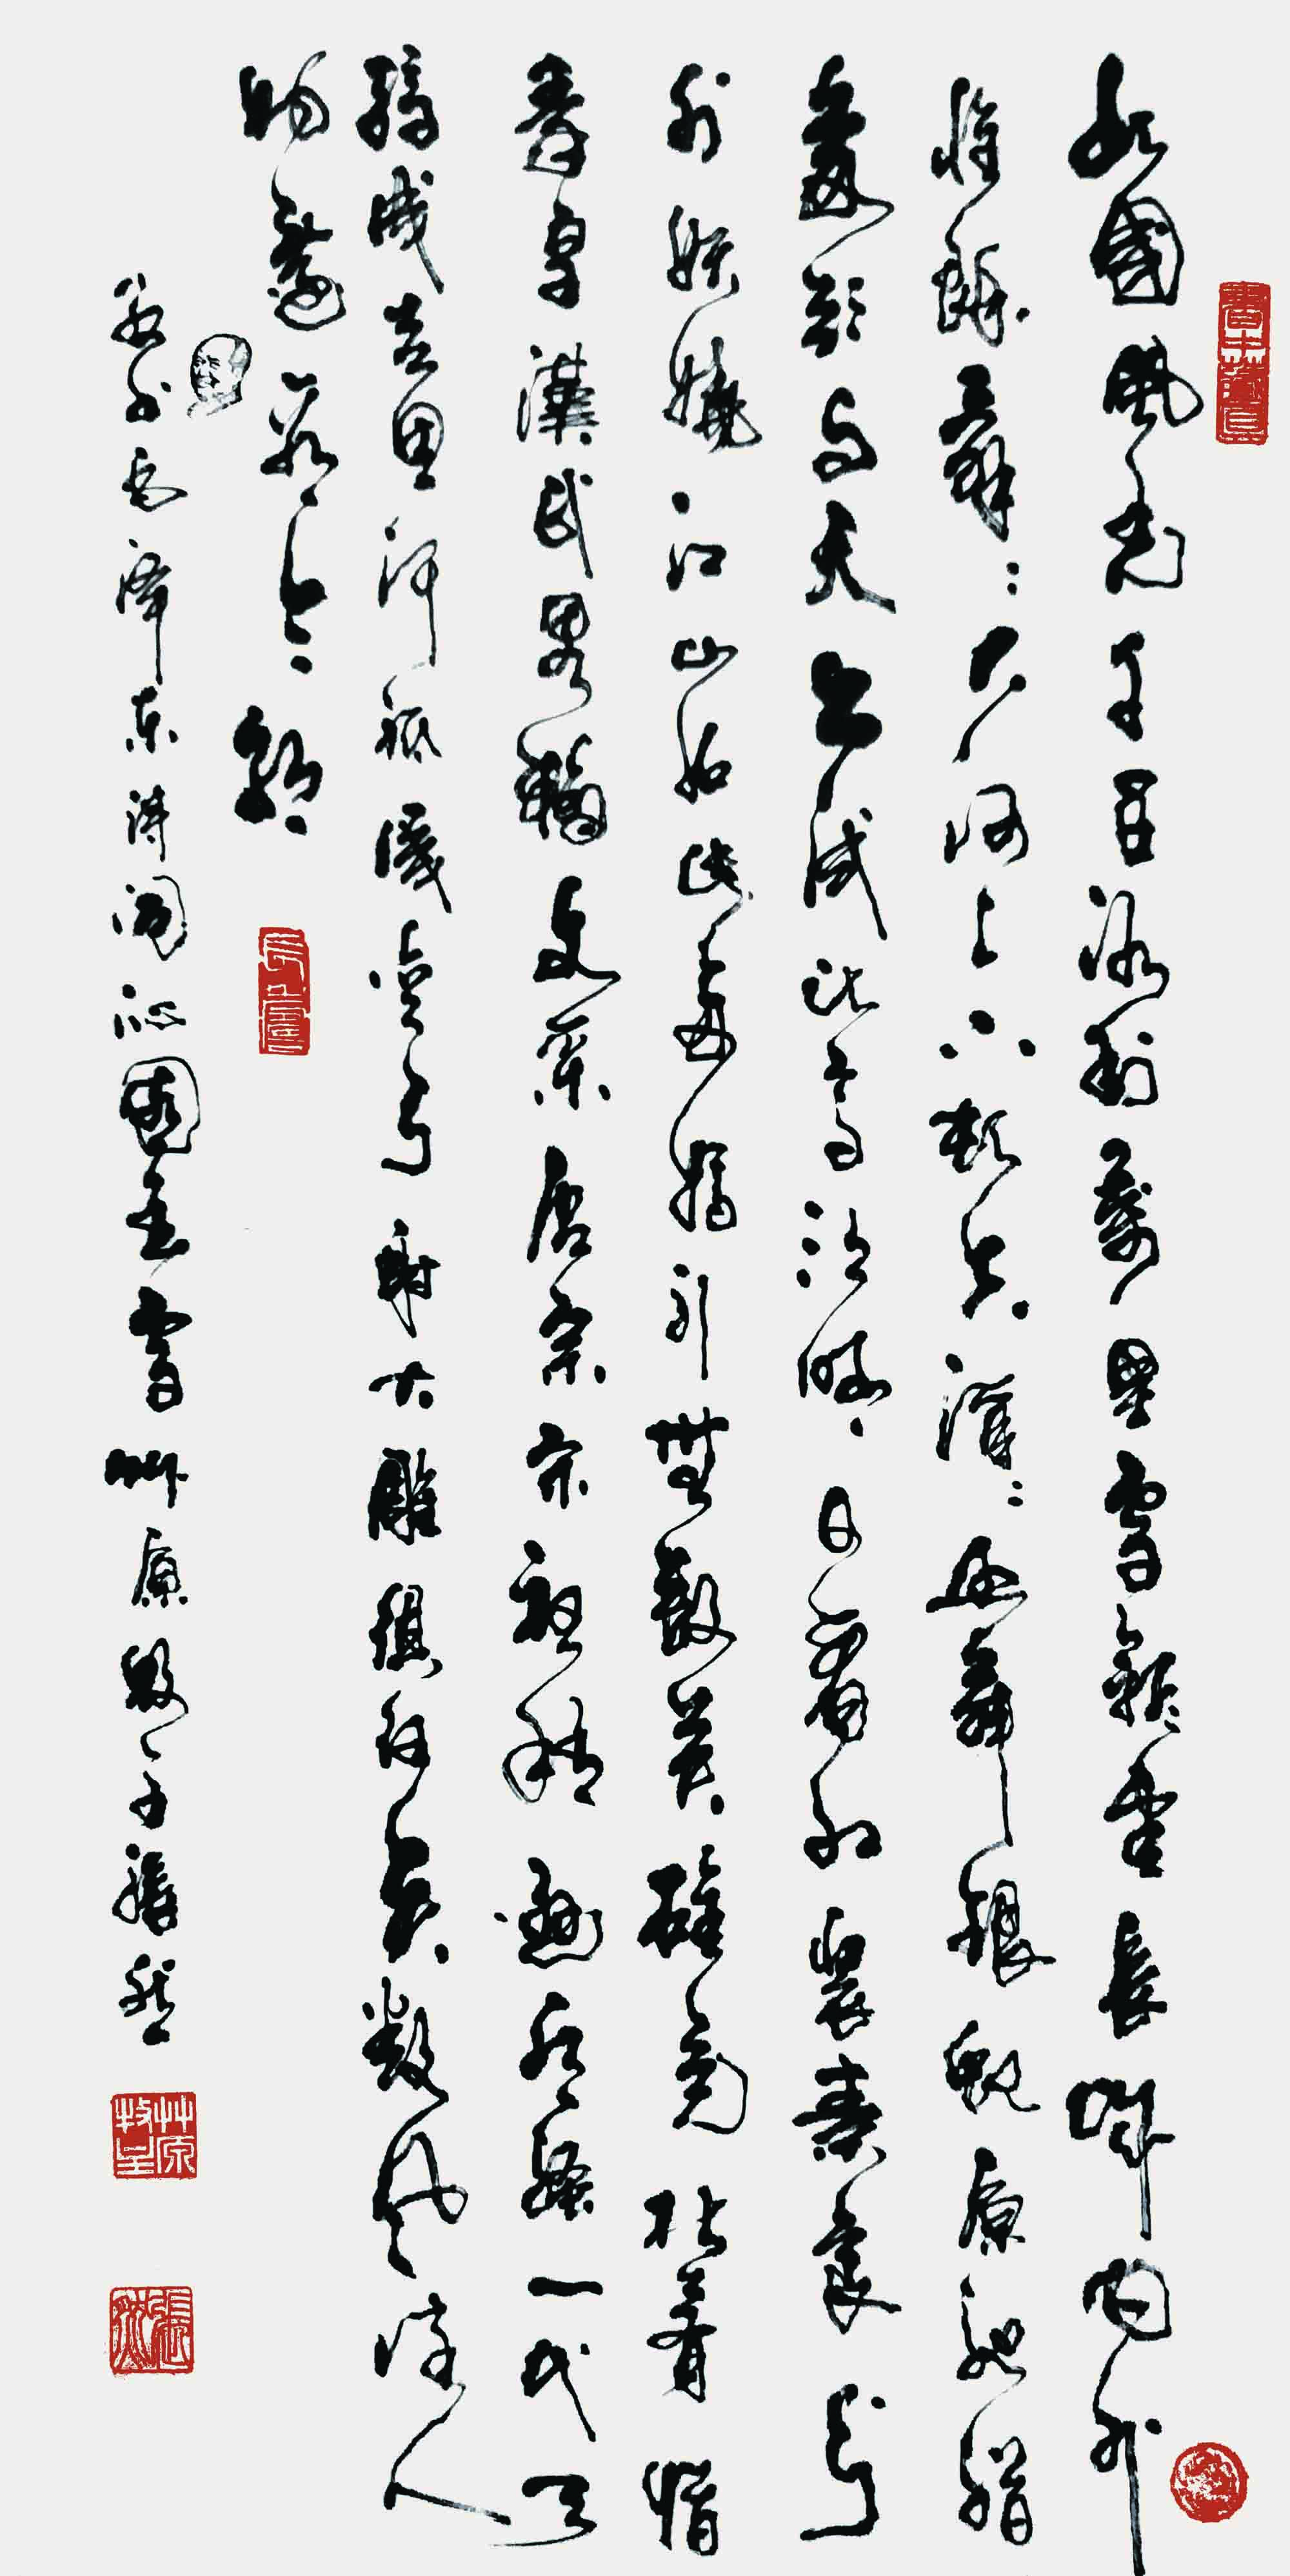 北國風光千里冰封萬里雪飄望長城内外
惟餘莽莽大河上下頓失滔滔山舞銀蛇原馳腊
象欲与天公試比高須晴日看紅裝素裹分
外妖嬈江山如此多嬌引無數英雄競折腰惜
秦皇漢武略輸文采唐宗宋祖稍遜風騷一代天
驕成吉思汗祗識彎弓射大雕俱往矣數風流人
物還看今朝
敬书毛澤东詩詞沁園春雪草原牧子張然